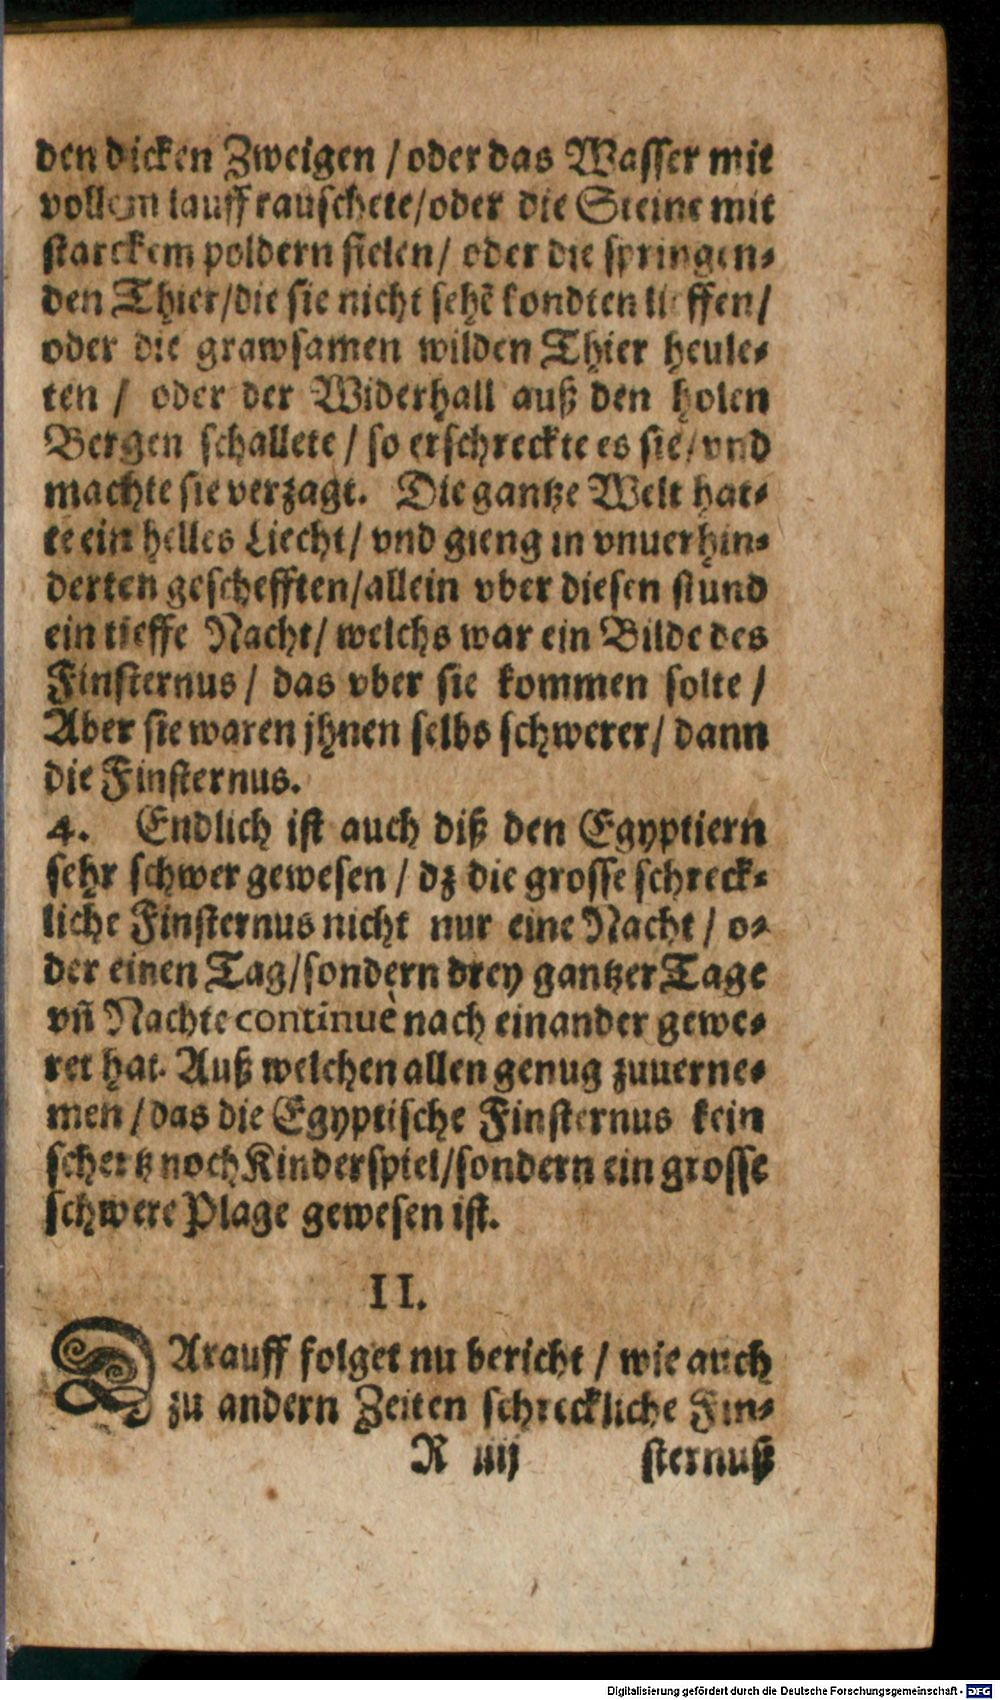 den dicken Zweigen / oder das Wasser mit
vollem lauff rauschete/oder die Steine mit
starckem poldern fielen/ oder die springen-
den Thier/die sie nicht sehẽ kondten lieffen/
oder die grawsamen wilden Thier heule-
ten / oder der Widerhall auß den holen
Bergen schallete / so erschreckte es sie/ vnd
machte sie verzagt. Die gantze Welt hat-
te ein helles Liecht/ vnd gieng in vnuerhin-
derten geschefften/allein vber diesen stund
ein tieffe Nacht/ welchs war ein Bilde des
Finsternus / das vber sie kommen solte /
Aber sie waren jhnen selbs schwerer/ dann
die Finsternus.
4. Endlich ist auch diß den Egyptiern
sehr schwer gewesen / dz die grosse schreck-
liche Finsternus nicht nur eine Nacht / o-
der einen Tag/sondern drey gantzer Tage
vñ Nachte continuè nach einander gewe-
ret hat. Auß welchen allen genug zuuerne-
men / das die Egyptische Finsternus kein
schertz noch Kinderspiel/sondern ein grosse
schwere Plage gewesen ist.
II.
DArauff folget nu bericht / wie auch
zu andern Zeiten schreckliche Fin-
R iiij sternuß
Digitalisierung gefördert durch die Deutsche Forschungsgemeinschaft - DFG